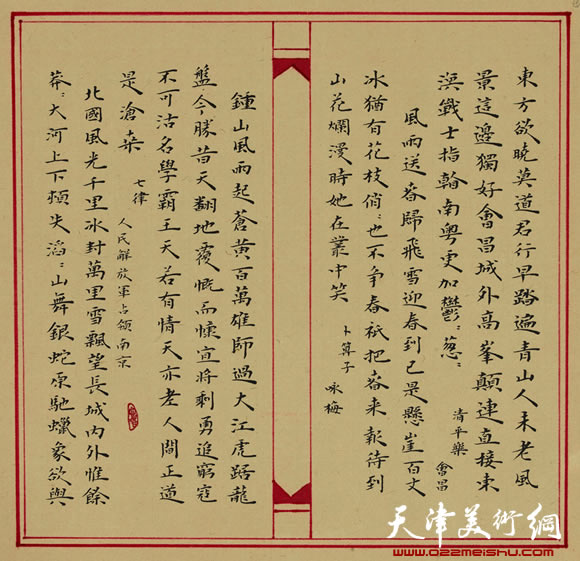 東方欲曉莫道君行早踏遍青山人未老風
景這邊獨好會昌城外高峯顛連直接東
溟戰士指翰南粵更加鬱〻蔥〻 清平樂 會昌
風雨送春歸飛雪迎春到已是懸崖百丈
冰猶有花枝俏〻也不爭春祇把春来報待到
山花爛漫時她在叢中笑 卜算子 咏梅
鍾山風雨起蒼黃百萬雄師過大江虎踞龍
盤今勝昔天翻地覆慨而慷宜將剩勇追窮寇
不可沽名學霸王天若有情天亦老人間正道
是滄桑 七律 人民解放軍占領南京
北國風光千里冰封萬里雪飄望長城內外惟餘
莽〻大河上下頓失滔〻山舞銀蛇原馳蠟象欲與
天津美術網
www.022meishu.com